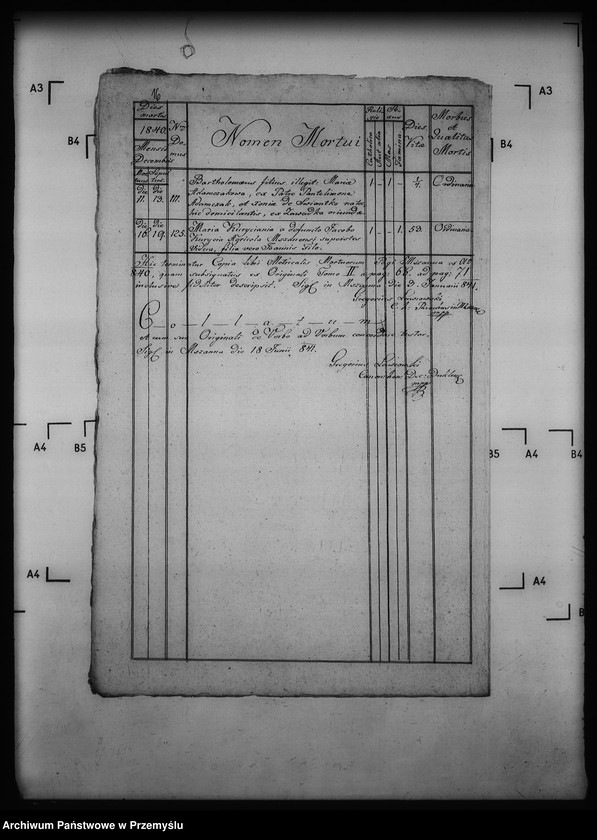 A3
A3
B4
B4
16
Dies mortis
1840.
Mensis Decembris
Nrus Domus
Nomen Mortui
Religio
Catholica
Aut alia
Sexus
Mas
Femina
Dies Vitæ
Morbus et Qualitas Mortis
Die 11.
Die 13.
111.
Bartholomæus filius illegit: Mariæ
Adamczakowa, ex Patre Pantelimone
Adamczak, et Xenia de
hic domicilantes, ex Zawadka oriunda
1 - 1 -
Ordinaria
Die 16.
Die 19.
125.
Maria Kuryciania a defuncto Jacobo
Kurycia Agricola Mszanensi superstes
Vidua, filia vero Joannis Filo.
1 - - 1.
53.
Ordinaria
Hic terminatur Copia Libri Metricalis Mortuorum Pagi Mszanna ex
840, quam subsignatus ex Originali Tomo II a pag: 68. ad pag: 71
inclusive fideliter descripsi. Sigl in Mszanna die 3. Januarii 841.
Gregorius
C-o-l-l-a-t-u-m
et cum suo Originali de Verbo ad Verbum concordare testor.
Sigl in Mszanna die 18 Junii 841.
Gregorius
A4
B5
B5
A4
B4
A4
A4
Archiwum Państwowe w Przemyślu